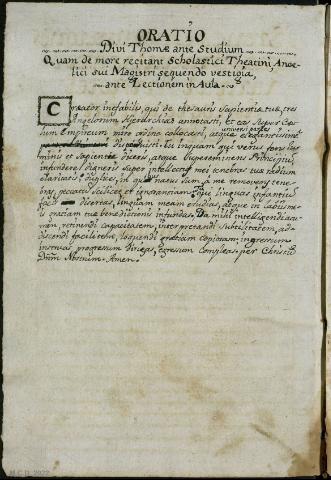 ORATIO
Divi Thomæ ante Studium
Quam de more recitant Scholastici Theatini, Ange-
lici sui Magistri sequendo vestigia,
ante Lectionem in Aula.
Creator inefabilis, qui de thesauris Sapientiæ tuæ, tres
Angelorum Hyerarchias annotasti, et eas super Cœ-
lum Empireum miro ordine collocasti, atque
universi partes
elegantissime
disposuisti. Tu inquam qui verus fons Lu-
minis et Sapientiæ diceris, atque Supereminens Principiu,
infundere digneris super intellectus mei tenebras tuæ radium
claritatis, duplices, in quibus natus sum, à me removens tene-
bras, peccatum scilicet et ignorantiam. Tu, qui linguas infantium
facis disertas, linguam meam erudias, atque in labijs me-
is gratiam tuæ benedictionis infundas. Da mihi intelligendi acu-
men, retinendi capacitatem, interpretandi subtilitatem, ad-
discendi facilitatem, loquendi gratiam copiosam, ingressum
instruas, progressum dirigas, egressum compleas. per Christũ
Dñm Nostrum. Amen.
M.C.D. 2022